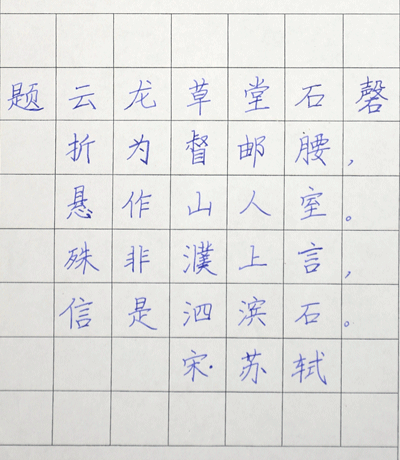 题云龙草堂石磬
折为督邮腰，
悬作山人室。
殊非濮上言，
信是泗滨石。
宋·苏轼